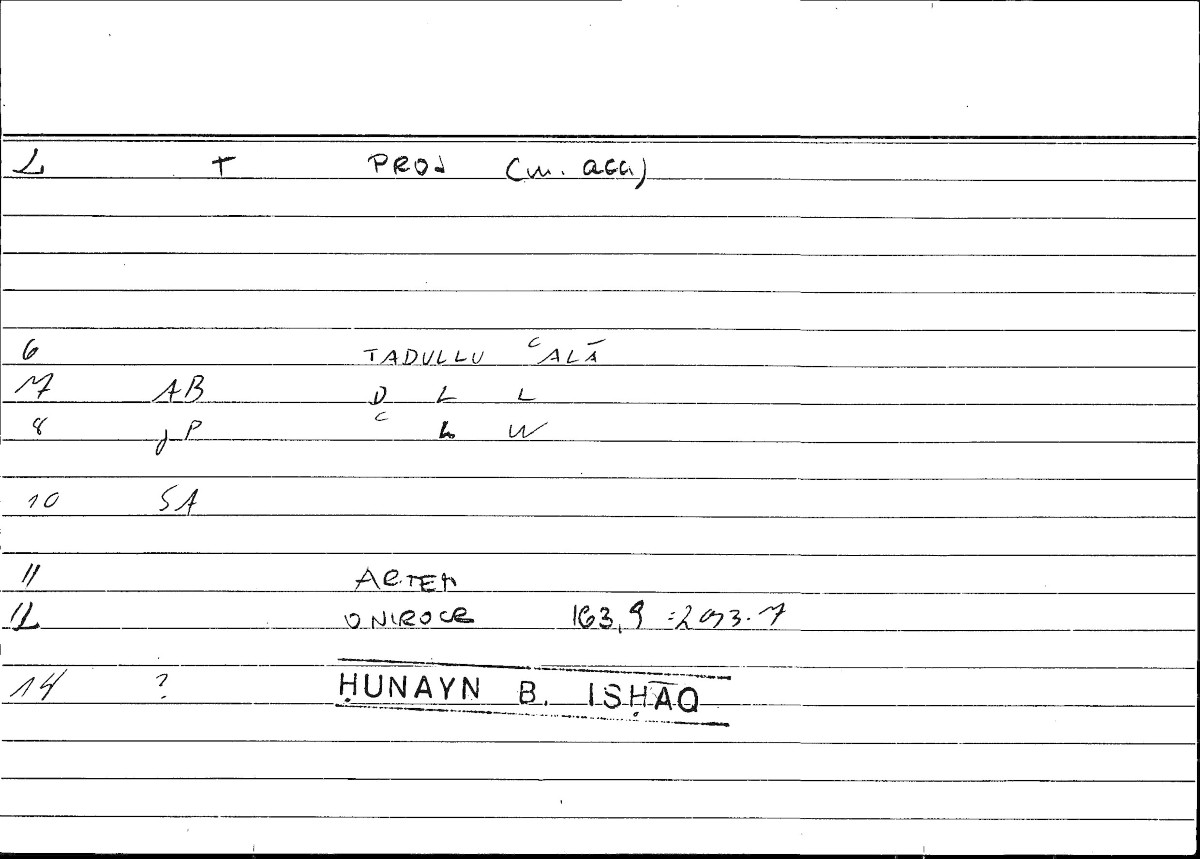 L T PROJ (m. acc)
6 TADULLU ʿALĀ
7 AB D L L
8 JP ʿ L W
10 SA
11 ARTEM
12 ONIROCR 163,9 = 293.7
14 ? ḤUNAYN B. ISḤĀQ